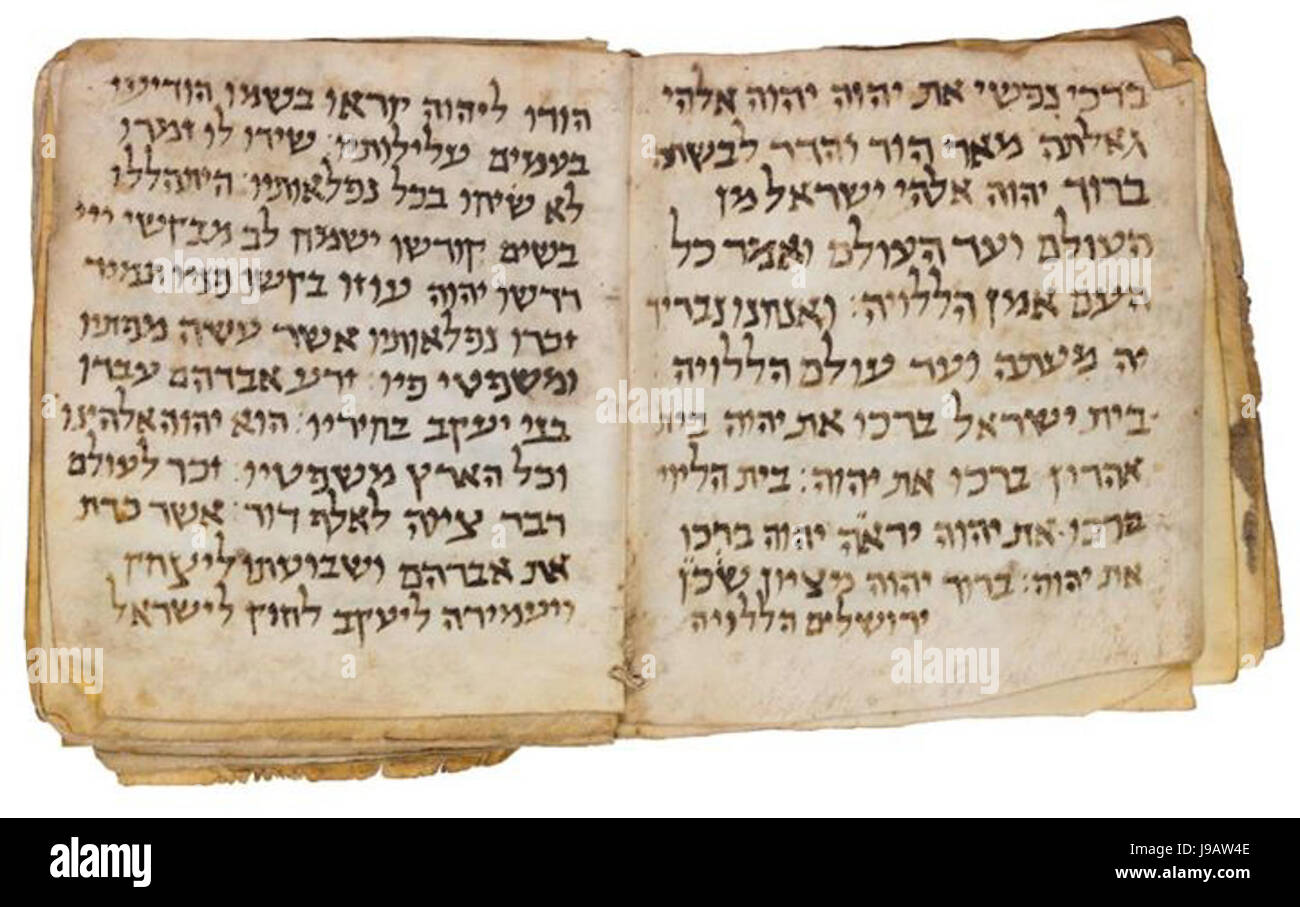 ברכי נפשי את יהוה יהוה אלהי
גאלתה מאד הוד והדר לבשתה
ברוך יהוה אלהי ישראל מן
העולם ועד העולם ואמר כל
העם אמן הללויה: ואנחנו נבריך
יה מעתה ועד עולם הללויה
בית ישראל ברכו את יהוה בית
אהרון ברכו את יהוה: בית הליוי
ברכו את יהוה יראה יהוה ברכו
את יהוה: ברוך יהוה מציון שכן
ירושלים הללויה
הודו ליהוה קראו בשמו הודיעו
בעמים עלילותיו: שירו לו זמרו
לא שיחו בכל נפלאותיו: היתהללו
בשים קודשו ישמח לב מבקשי ייי
דרשו יהוה עוזו בקשו פניו תמיד
זכרו נפלאותיו אשר עשה מפתיו
ומשפטי פיו: זרע אברהם עבדו
בני יעקב בחיריו: הוא יהוה אלהינו
וכל הארץ משפטיו: זכר לעולם
דבר ציוה לאלף דור: אשר כרת
את אברהם ושבועתו ליצחק
ויעמידה ליעקב לחוק לישראל
alamy
alamy
alamy
a
a
a
a
alamy
Image ID: J9AW4E
www.alamy.com